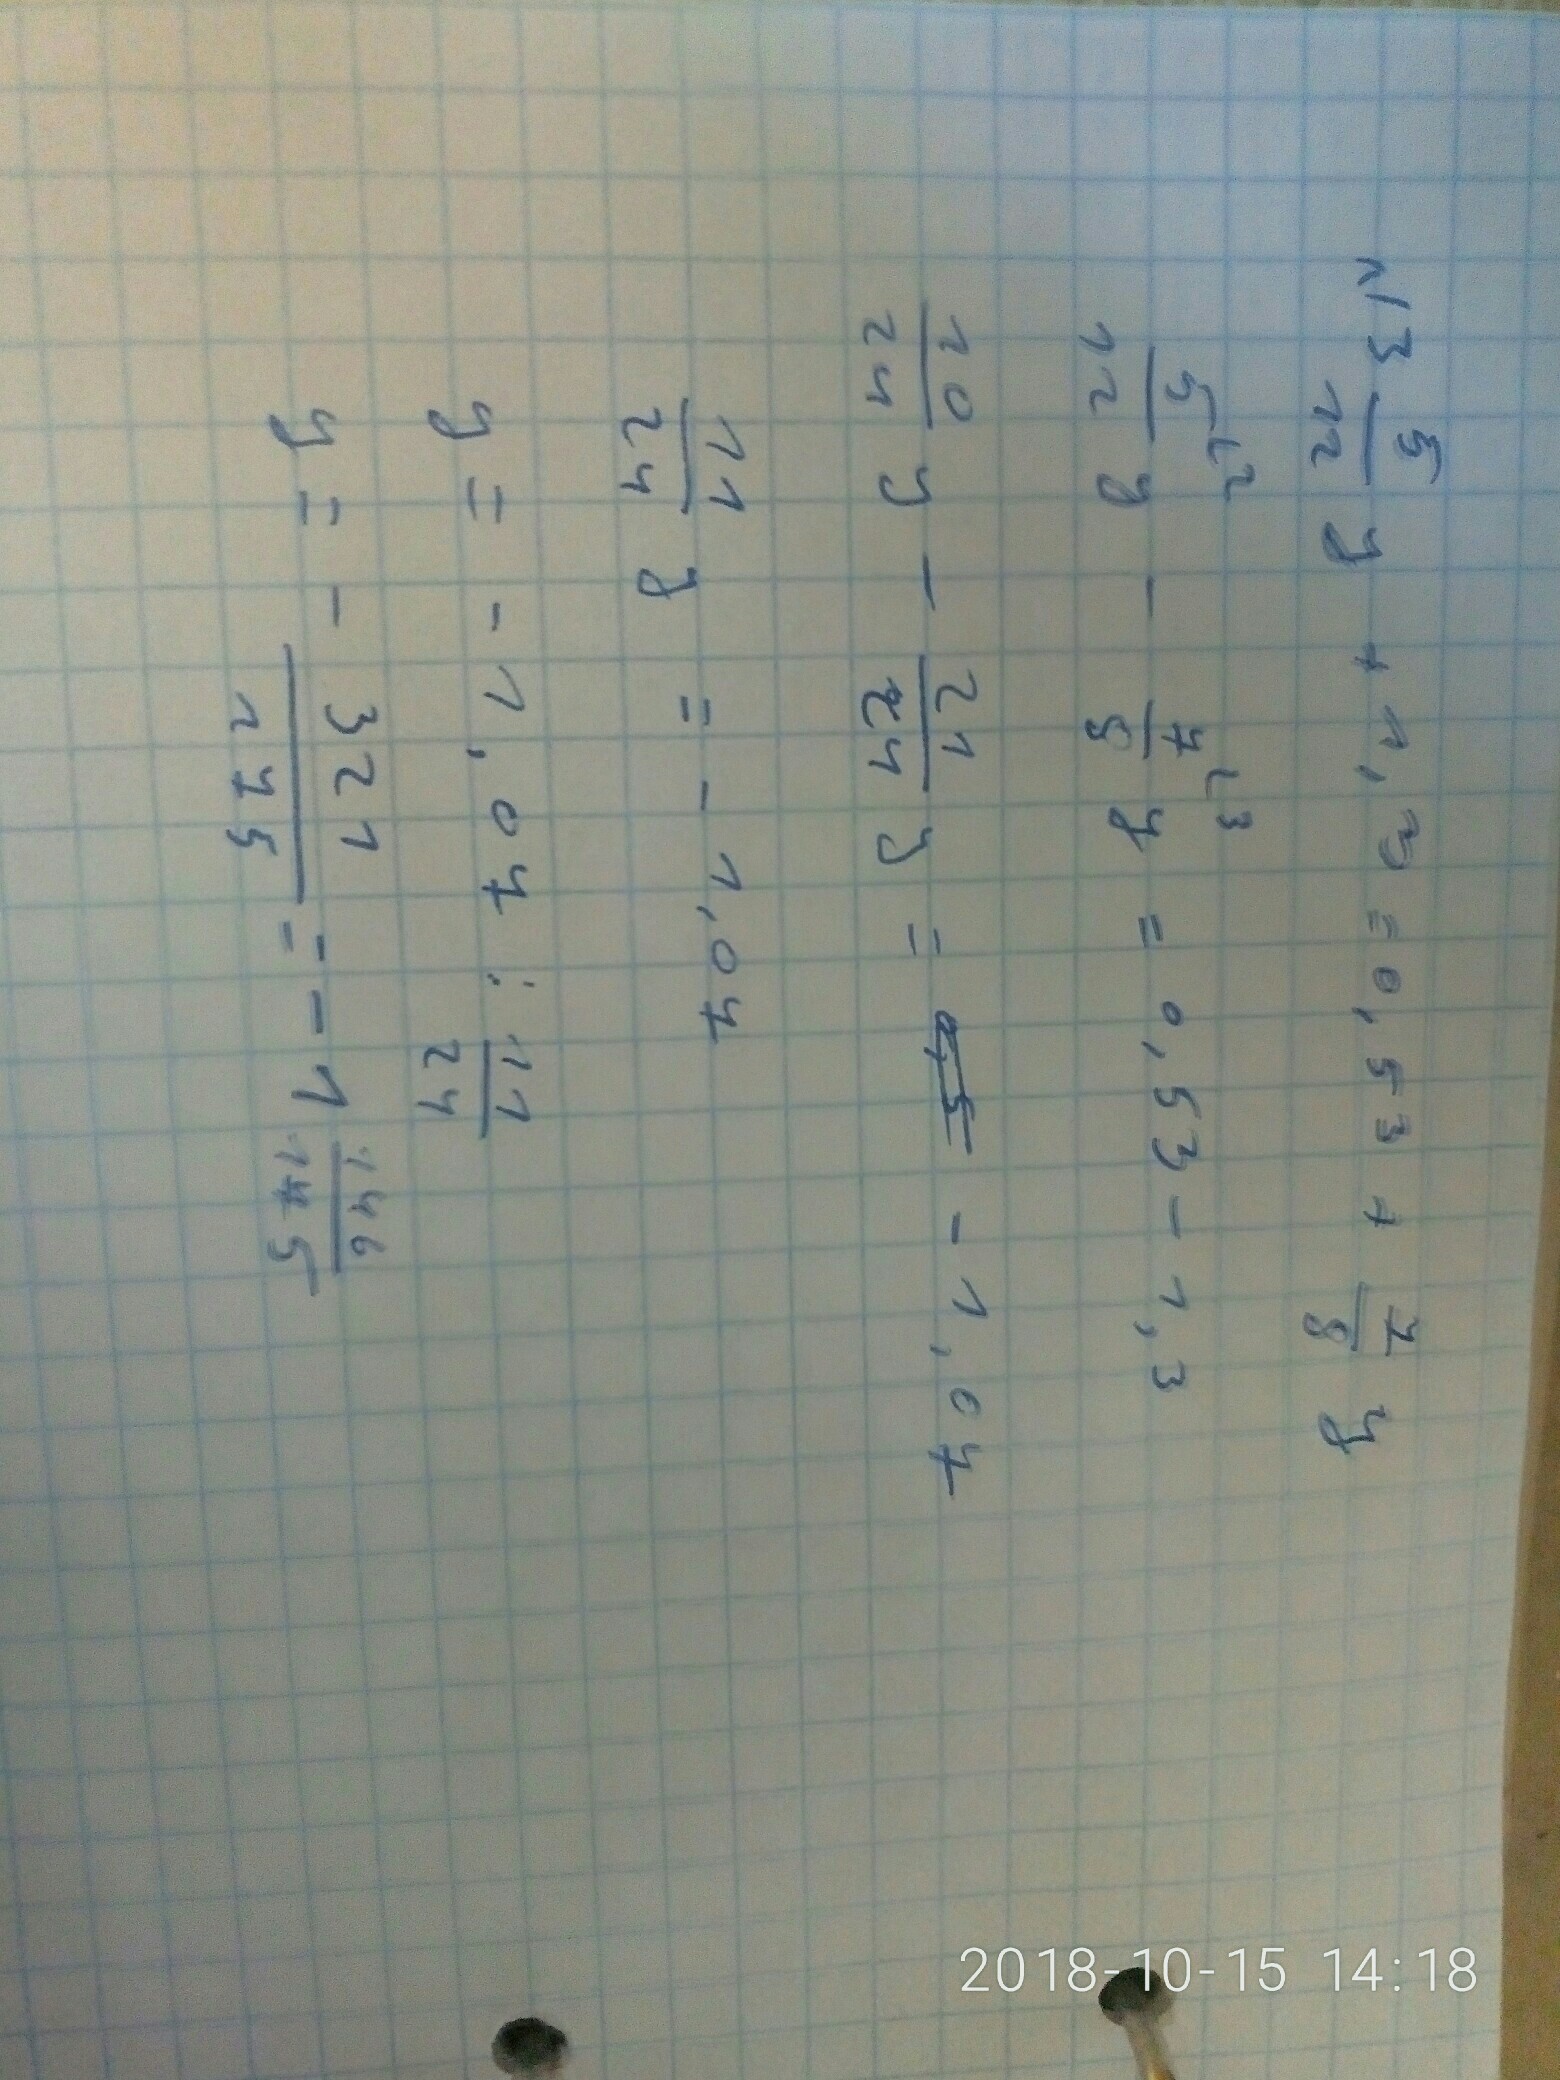 №3 5/12 y + 1,3 = 0,53 + 7/8 y
5/12 ⌊2 y - 7/8 ⌊3 y = 0,53 - 1,3
10/24 y - 21/24 y = - 1,07
11/24 y = - 1,07
y = - 1,07 : 11/24
y = - 321/275 = - 1 146/175
2018-10-15 14:18